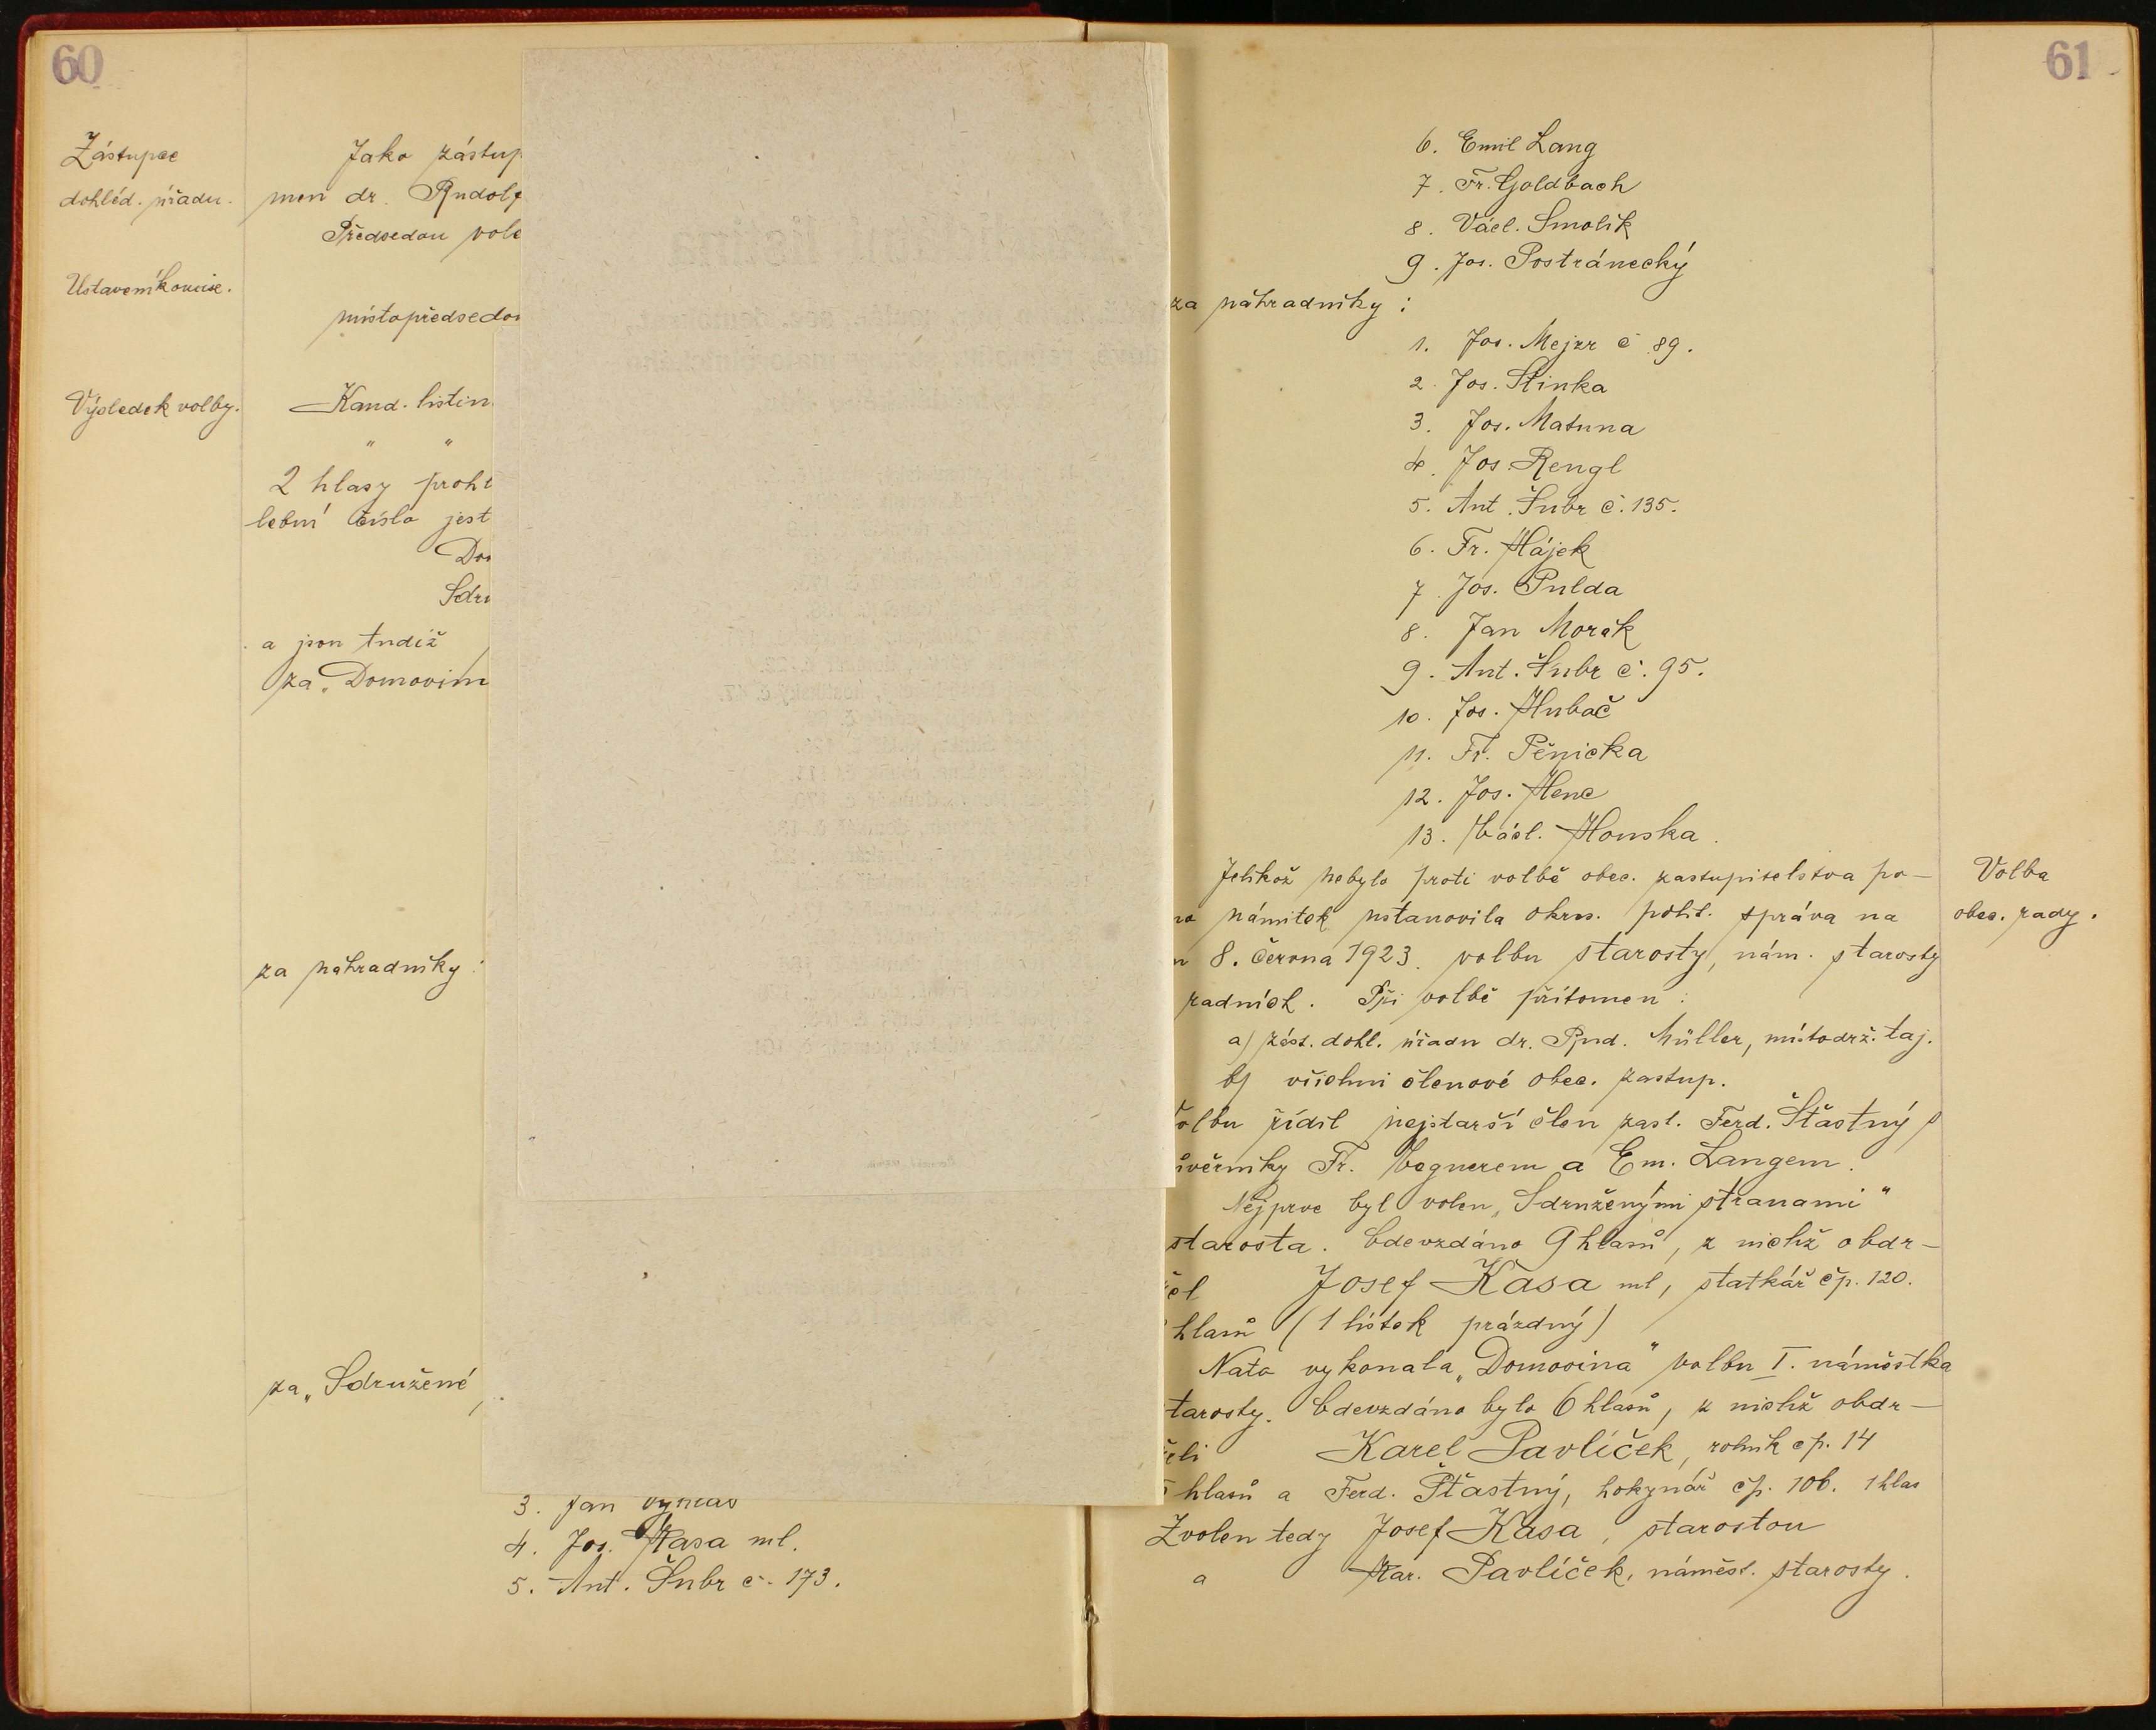 60
Zástupce
dohléd. úřadu.
Ustavení komise.
Výsledek volby.
Jako zástup
men dr. Rudolf
Předsedou vole
místopředsedo
Kand. listin
" "
2 hlasy prohl
lební číslo jest
Do
Sdru
a jsou tudíž
za „Domovin
za náhradníky:
za „Sdružené
3. Jan
4. Jos. Kasa ml.
5. Ant. Šubr č. 173.
61
6. Emil Lang
7. Fr. Goldbach
8. Václ. Smolík
9. Jos. Postránecký
za náhradníky:
1. Jos. Mejzr č 89.
2. Jos. Stinka
3. Jos. Matuna
4. Jos Rengl
5. Ant. Šubr č. 135.
6. Fr. Hájek
7. Jos. Pulda
8. Jan Morák
9. Ant. Šubr č. 95.
10. Jos. Hubač
11. Fr. Pěnicka
12. Jos. Henc
13. Václ. Honska.
Jelikož nebylo proti volbě obec. zastupitelstva po-
no námitek ustanovila okres. polit. správa na
n 8. června 1923. volbu starosty, nám. starosty
radních. Při volbě přítomen:
a) zást. dohl. úřadu dr. Rud. Müller, místodrž. taj.
b) všichni členové obec. zastup.
olbu řídil nejstarší člen zast. Ferd. Šťastný s
ůvěrníky Fr. Vognerem a Em. Langem.
Nejprve byl volen „Sdruženými stranami"
starosta. Odevzdáno 9 hlasů, z nichž obdr-
žel Josef Kasa ml, statkář čp. 120.
hlasů (1 lístek prázdný)
Nato vykonala „Domovina" volbu I. náměstka
tarosty. Odevzdáno bylo 6 hlasů, z nichž obdr-
želi Karel Pavlíček, rolník čp. 14
5 hlasů a Ferd. Šťastný, hokynář čp. 106. 1 hlas
Zvolen tedy Josef Kasa, starostou
a Kar. Pavlíček, náměst. starosty.
Volba
obec. rady.